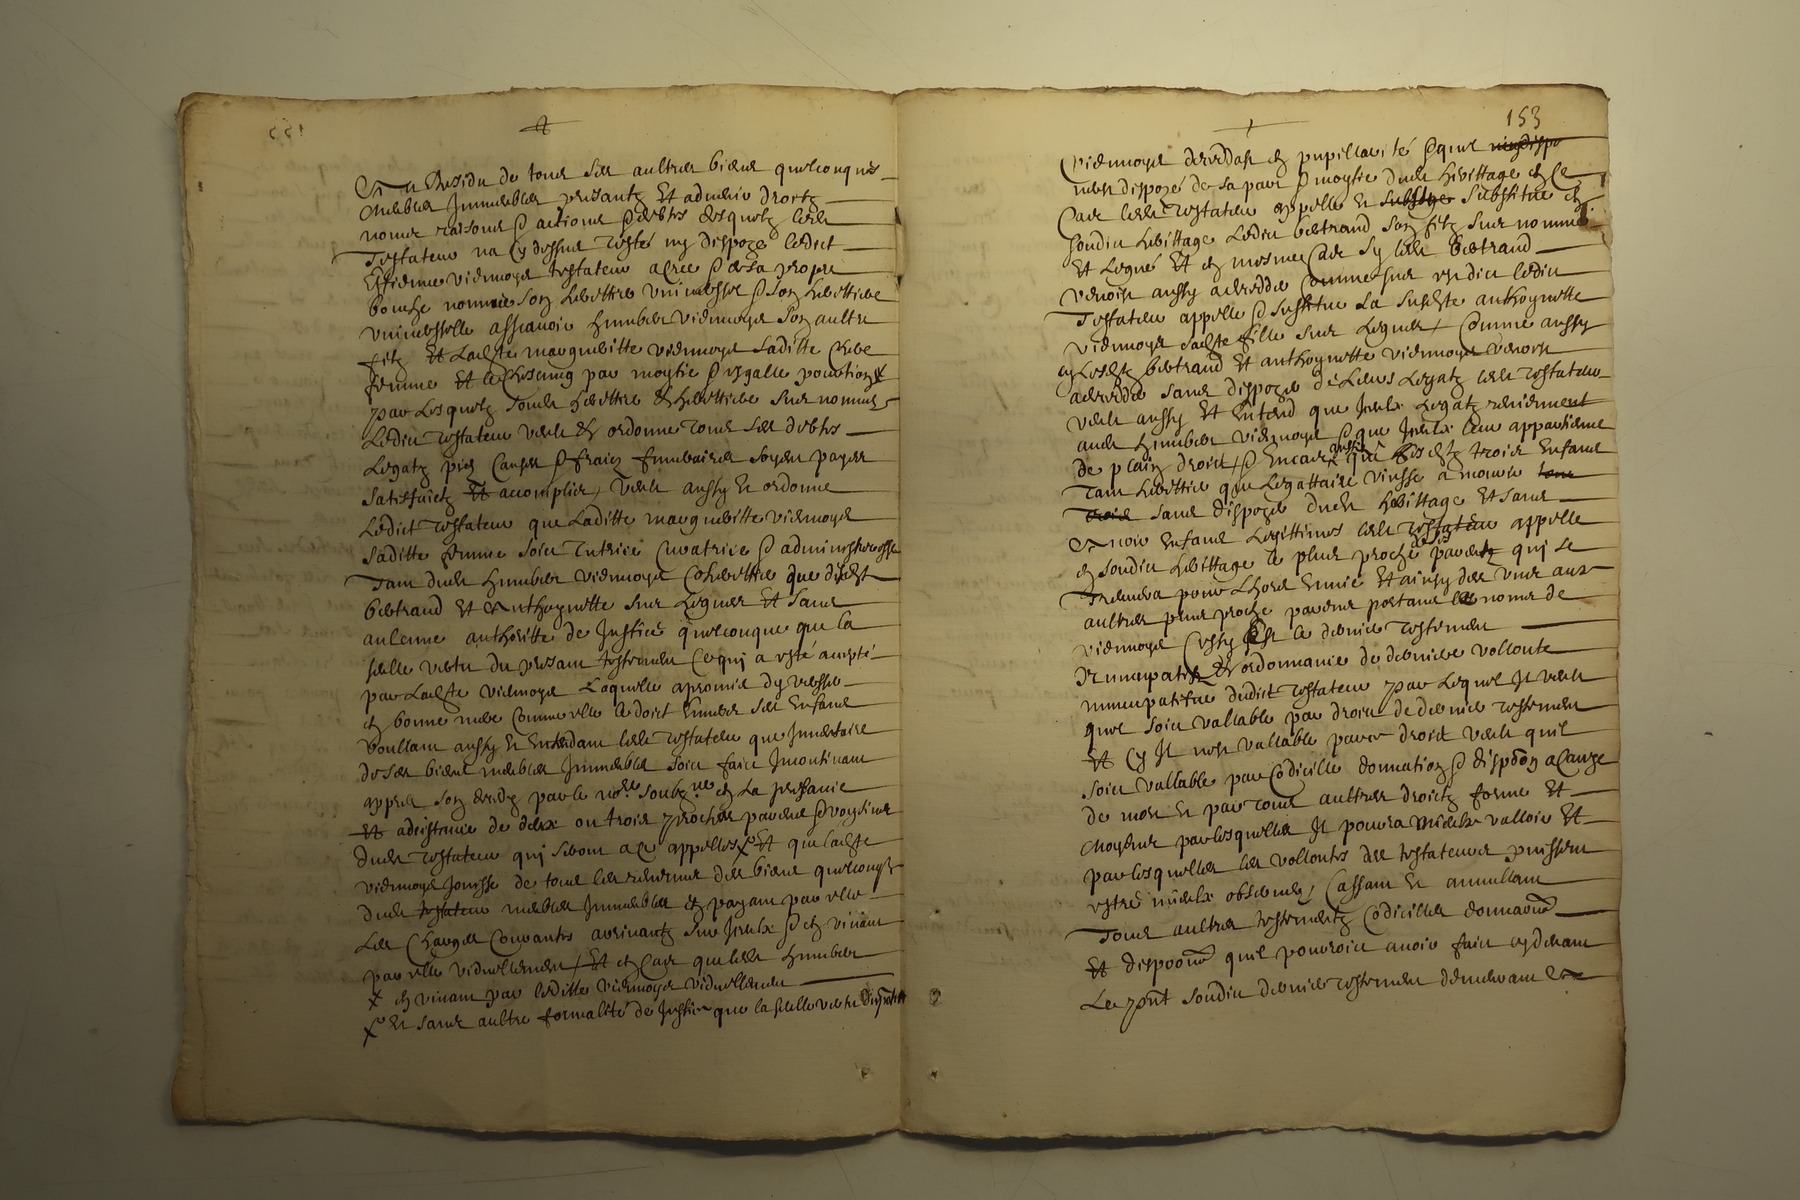 Et au Residu de tous ses aultres biens quelconques
Meubles Immeubles presantz Et advenir droitz
noms raisons & actions & debtes desquelz ledit
Testateur na Cy dessus testé ny dispozé ledict
Estienne viennoys testateur a cree & de sa propre
bouche nommé son herettier universsel & son herettiere
universselle asscavoir Humbert viennoys son aultre
filz Et Ladicte margueritte viennoys saditte Chere
femme Et a Chescung par moytie & esgalle portion
par Lesquelz sondit herettier & herettiere sus nommes
Ledit testateur veult & ordonne tous ses debtes
Legatz pies Causes & fraiz funeraires soyent payes
satisfaictz Et accomplies, veult aussy Et ordonne
Ledict testateur que Laditte margueritte viennoys
saditte femme soict Tutrice Curatrice & administreresse
Tant dudit Humbert viennoys Coherettier que desdictz
bertrand Et Anthoynette sus Legues Et sans
aulcune authoritte de Justice quelconque que la
seulle vertu du presant testament Ce qui a esté accepté
par Ladicte viennoys Laquelle a promis dy verser
en bonne mere Comme elle le doict Envers ses Enfans
voullant aussy Et Entendant ledit testateur que Inventaire
de ses biens meubles Immeubles soict faict Incontinant
appres son deces par le nore soubzne en La presance
Et adcistance de deux ou trois proches parens & voysins
dudit testateur qui seront a Ce appelles Et que ladicte
viennoys Jouisse de tous les revenus des biens quelconques
dudit testateur meubles Immeubles en payant par elle
Les Charges Courantes arrivantz sur Iceulx & en vivant
par elle viduellement, Et en Cas que ledit Humbert
x en vivant par laditte viennoys viduellement
x Et sans aultre formalité de Justice que la seulle vertu
153
viennoys decedast en pupillarité & que
neust dispozé de sa part & moytie dudit herittage en Ce
Cas ledit testateur appelle Et substitue en
sondit herittage Ledit bertrand son filz sus nommé
Et Legué Et en mesme Cas sy ledit bertrand
venoist aussy a deceder Comme sus est dict ledit
Testateur appelle & substitue La susdicte anthoynette
viennoys sadicte fille sus Leguee, Comme aussy
sy Lesdictz bertrand Et anthoynette viennoys venoist
a deceder sans dispozer de Leurs Legatz ledit testateur
veult aussy Et Entend que Iceulx Legatz reviennent
audit Humbert viennoys & que Iceulx luy appartienne
de plain droict, & Encores aussy que lesdictz trois Enfans
Tant herettier que Legattaire vinsse a mourir tous
trois sans dispozer dudit herittage Et sans
Avoir Enfans Legittimes ledit testateur appelle
en sondit herittage le plus proche de ses parentz qui se
Treuvera pour Lhors Envie Et ainsy des uns aux
aultres plus proche parens portans le noms de
viennoys Cessy Est le dernier testement
Nuncupatif Et ordonnance de derniere vollonte
nuncupative dudict testateur par Lequel Il veult
quel soict vallable par droict de dernier testement
Et Cy Il nest vallable par ce droict veult quil
soict vallable par Codicille donnation & dispoon a Cauze
de mort Et par tous aultres droictz forme Et
Moyens par lesquelles Il pourra mieulx valloir Et
par lesquelles les vollontes des testateurs puissent
estre mieulx observees, Cassant Et annullant
Tous aultres testementz Codicilles donnaons
Et dispoons quil pouroict avoir faict cy devant
Le pnt sondit dernier testement demeurant En